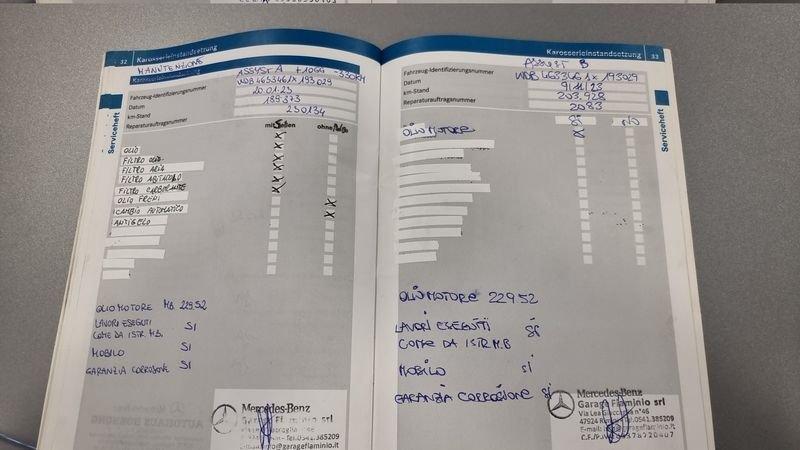 32 Karosserieinstandsetzung
MANUTENZIONE
ASSYST A +1066 -330KM
Fahrzeug-Identifizierungsnummer WDB4633461X193029
Datum 20.01.23
km-Stand 189373
Reparaturauftragsnummer 230134
Serviceheft
OLIO
FILTRO OLIO
FILTRO ARIA
FILTRO ABITACOLO
FILTRO CARBURANTE
OLIO FRENI
CAMBIO AUTOMATICO
ANTIGELO
OLIO MOTORE MB. 229.52
LAVORI ESEGUITI
COME DA ISTR. M.B. SI
MOBILO SI
GARANZIA CORROSIONE SI
Mercedes-Benz
Tel.0541.385209
Karosserieinstandsetzung 33
ASSYST B
Fahrzeug-Identifizierungsnummer WDB 463346 1X 193029
Datum 9/11/23
km-Stand 203.928
Reparaturauftragsnummer 2083
Serviceheft
SI NO
OLIO MOTORE X
OLIO MOTORE 229 52
LAVORI ESEGUITI SI
COME DA ISTR M.B
MOBILO SI
GARANZIA CORROSIONE SI
Mercedes-Benz
Garage Flaminio srl
Via Lea n°46
47924 Tel.0541.385209